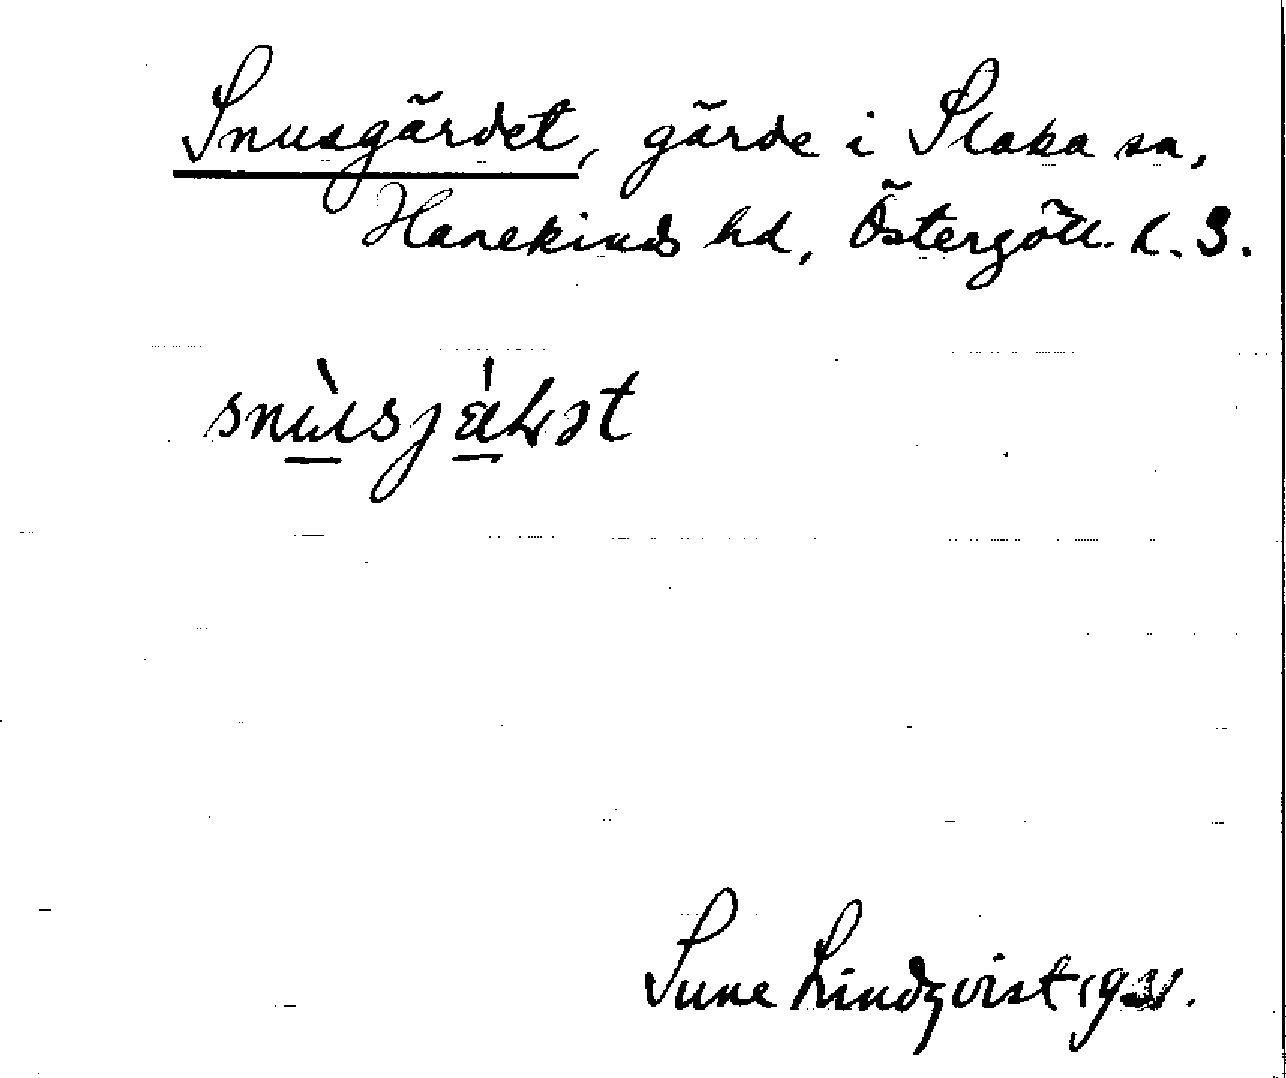 Snusgärdet, gärde i Slaka sn,
Hanekinds hd, Östergötl. l. S.
Sune Lindqvist 19